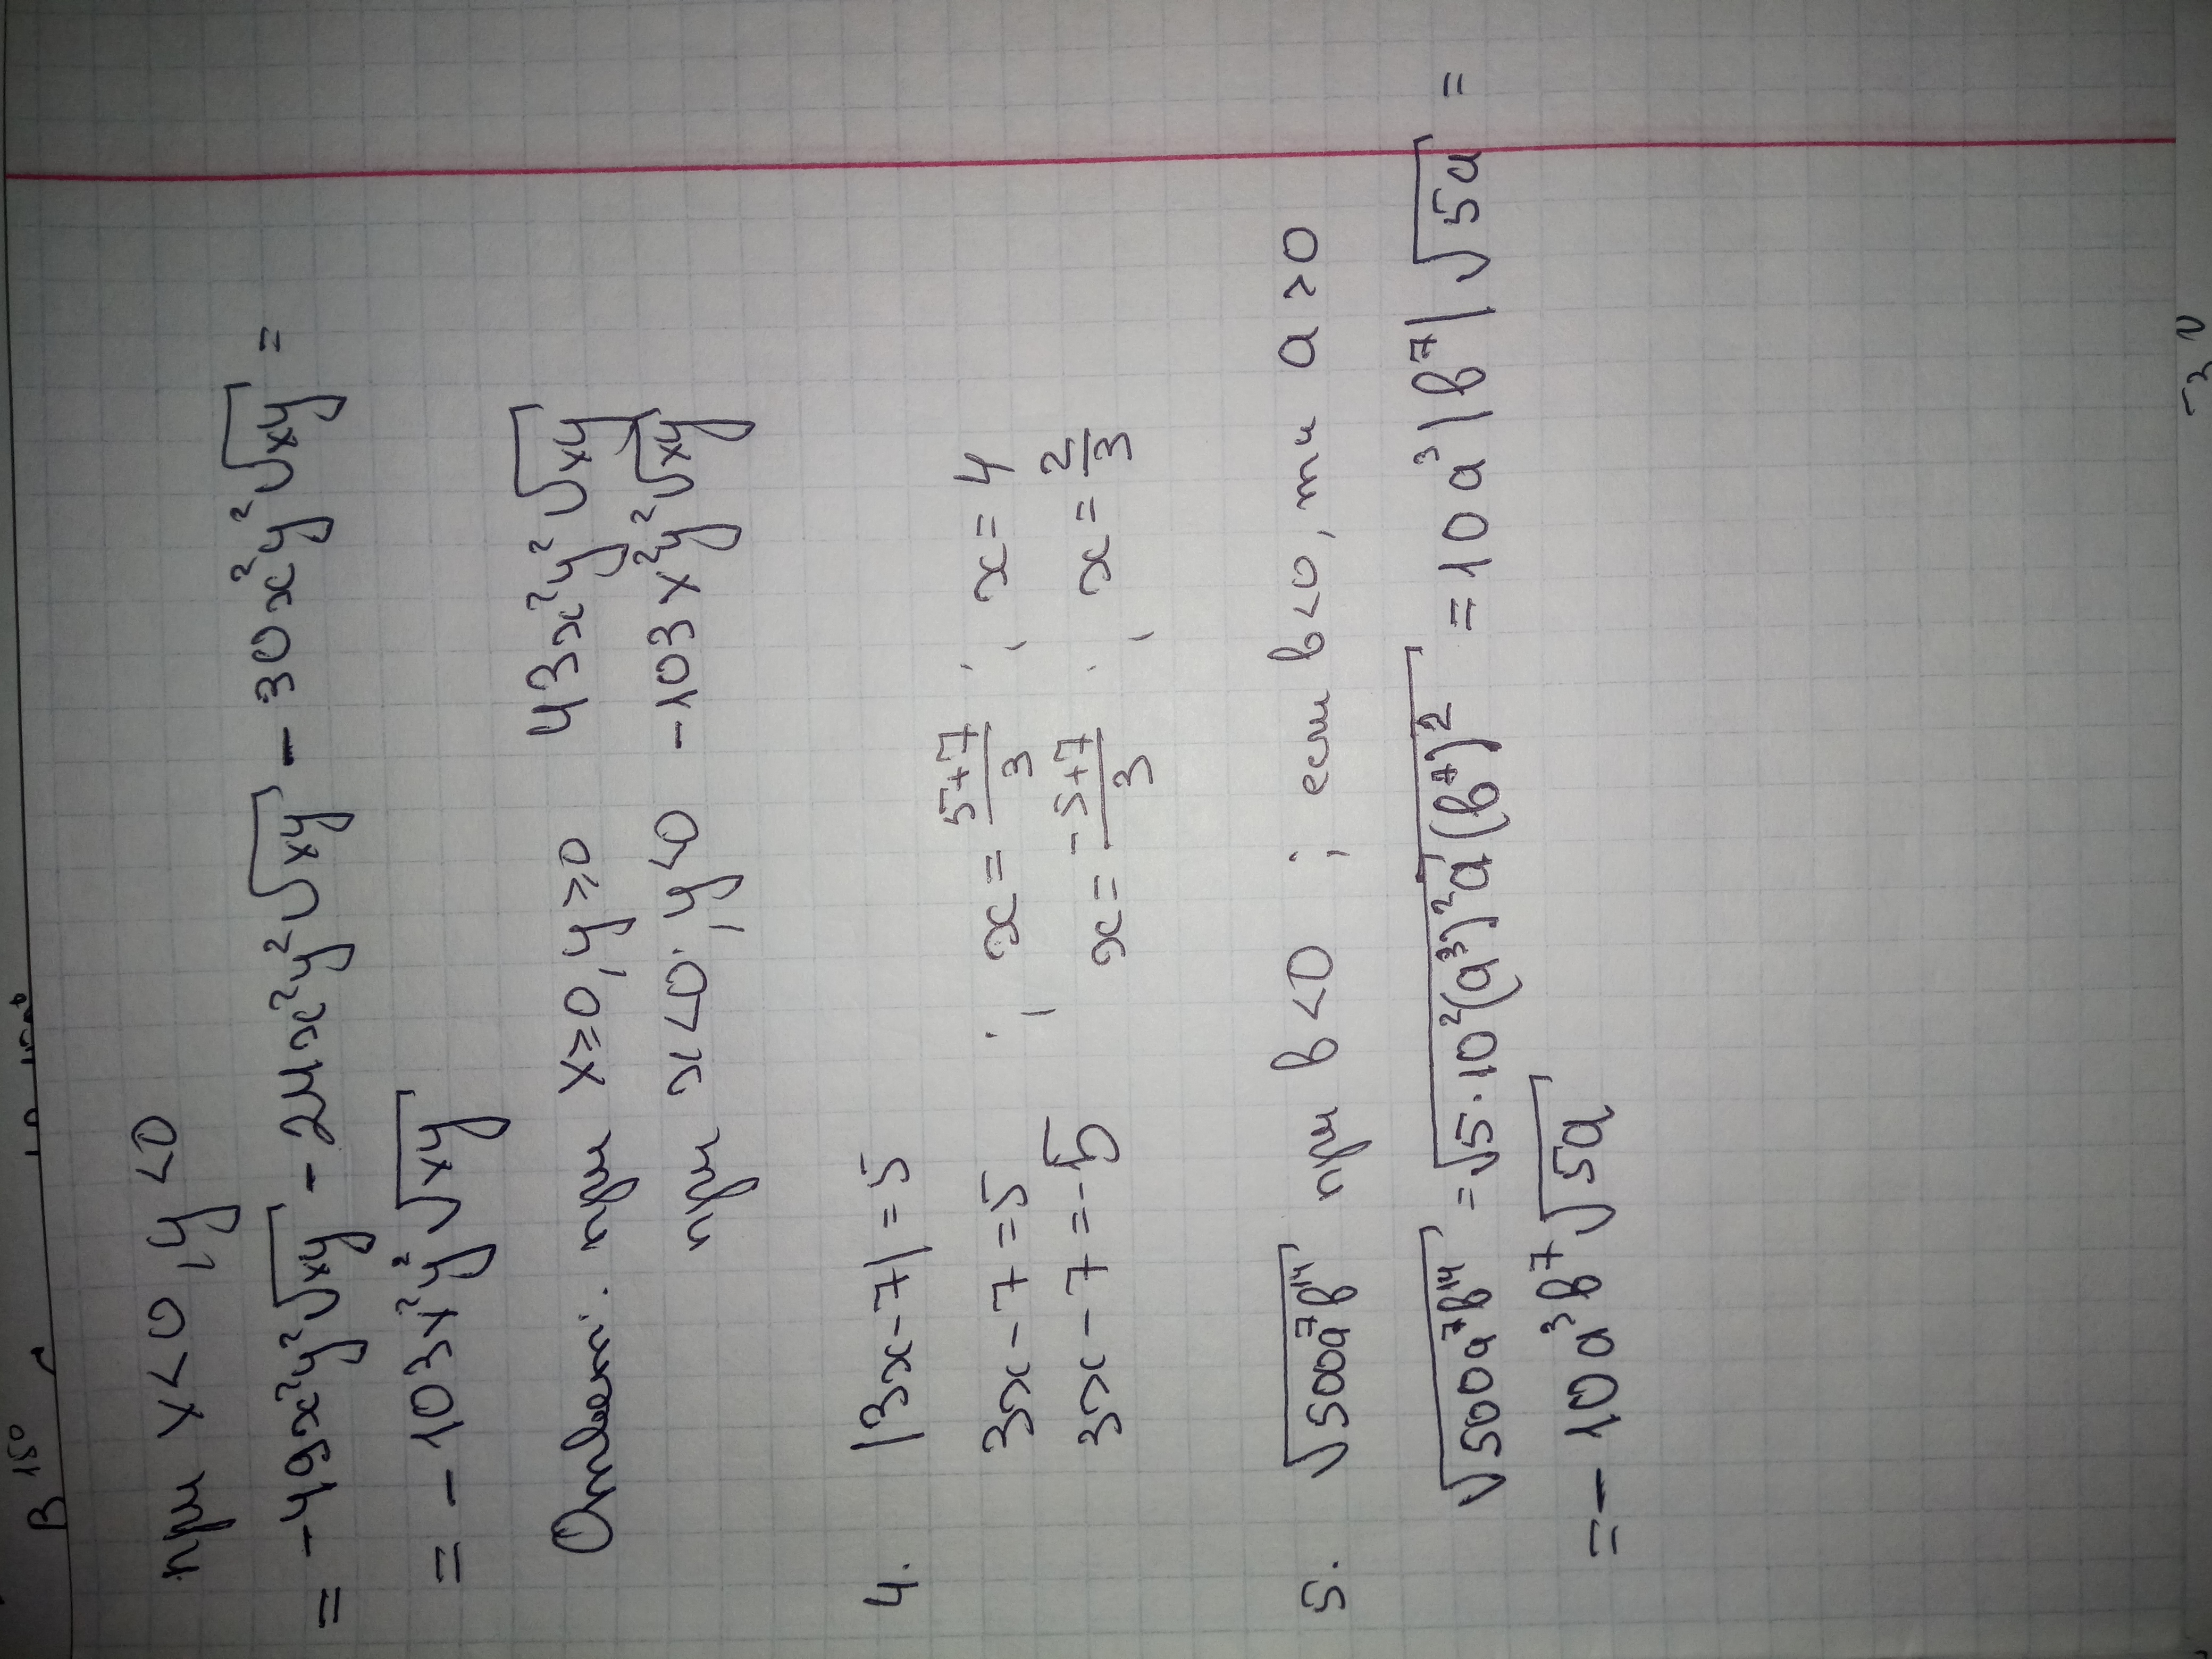 при x<0, y<0
= -49x²y²√xy - 24x²y²√xy - 30x²y²√xy =
= -103x²y²√xy
Ответ: при x⩾0, y⩾0 43x²y²√xy
при x<0; y<0 -103x²y²√xy
4. |3x-7|=5
3x-7=5 ; x=(5+7)/3 ; x=4
3x-7=-5 ; x=(-5+7)/3 ; x=2/3
5. √500a⁷b¹⁴ при b<0 ; если b<0, то a>0
√500a⁷b¹⁴ = √5·10²(a³)²a(b⁷)² = 10a³|b⁷|√5a =
= -10a³b⁷√5a